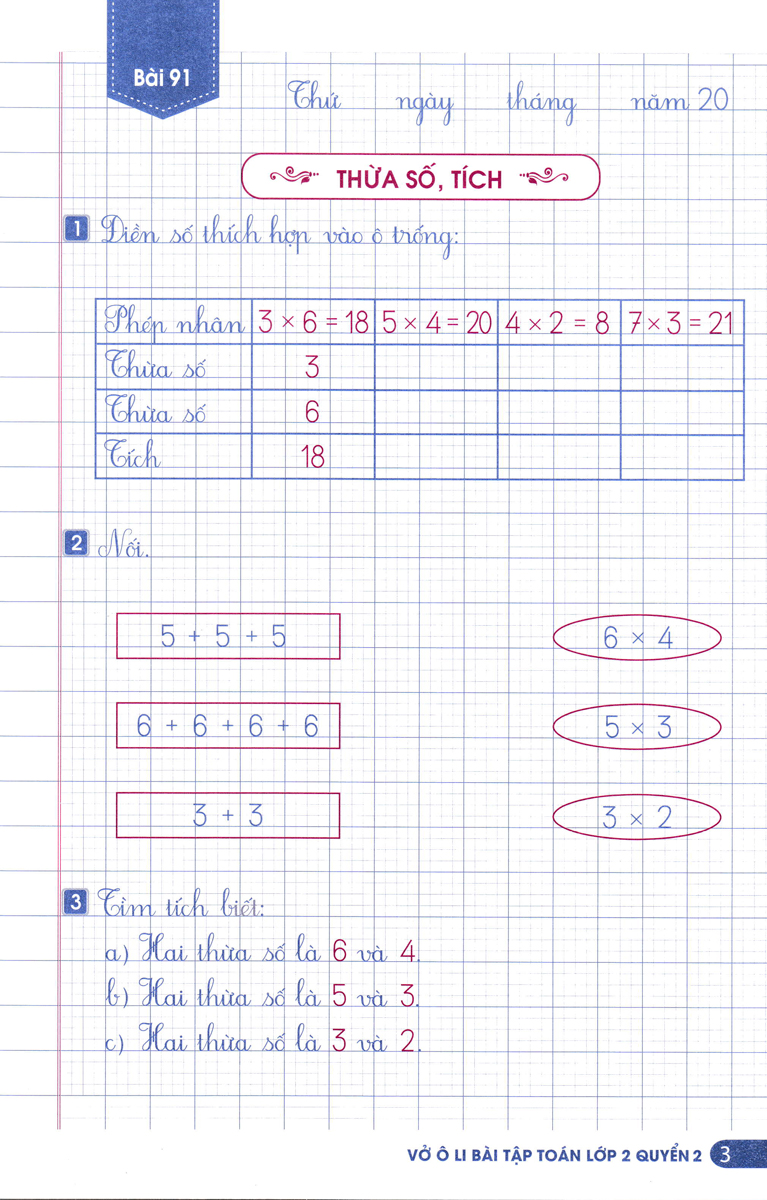 Bài 91
Thứ ngày tháng năm 20
THỪA SỐ, TÍCH
1 Điền số thích hợp vào ô trống:
Phép nhân 3 × 6 = 18 5 × 4 = 20 4 × 2 = 8 7 × 3 = 21
Thừa số 3
Thừa số 6
Tích 18
2 Nối.
5 + 5 + 5 6 × 4
6 + 6 + 6 + 6 5 × 3
3 + 3 3 × 2
3 Tìm tích biết:
a) Hai thừa số là 6 và 4.
b) Hai thừa số là 5 và 3.
c) Hai thừa số là 3 và 2.
VỞ Ô LI BÀI TẬP TOÁN LỚP 2 QUYỂN 2 3